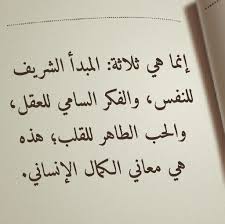 إنما هي ثلاثة: المبدأ الشريف
للنفس، والفكر السامي للعقل،
والحب الطاهر للقلب؛ هذه
هي معاني الكمال الإنساني.